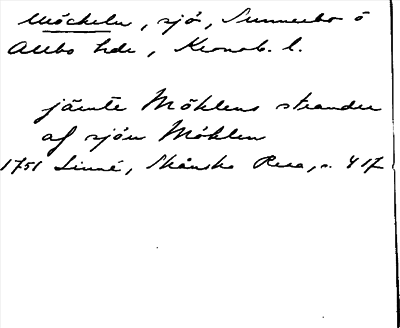 Möckeln, sjö, Sunnerbo o
Allbo hde, Kronob. l.
jämte Möklens strander
af sjön Möklen
1751 Linné, Skånska Resa, s. 417